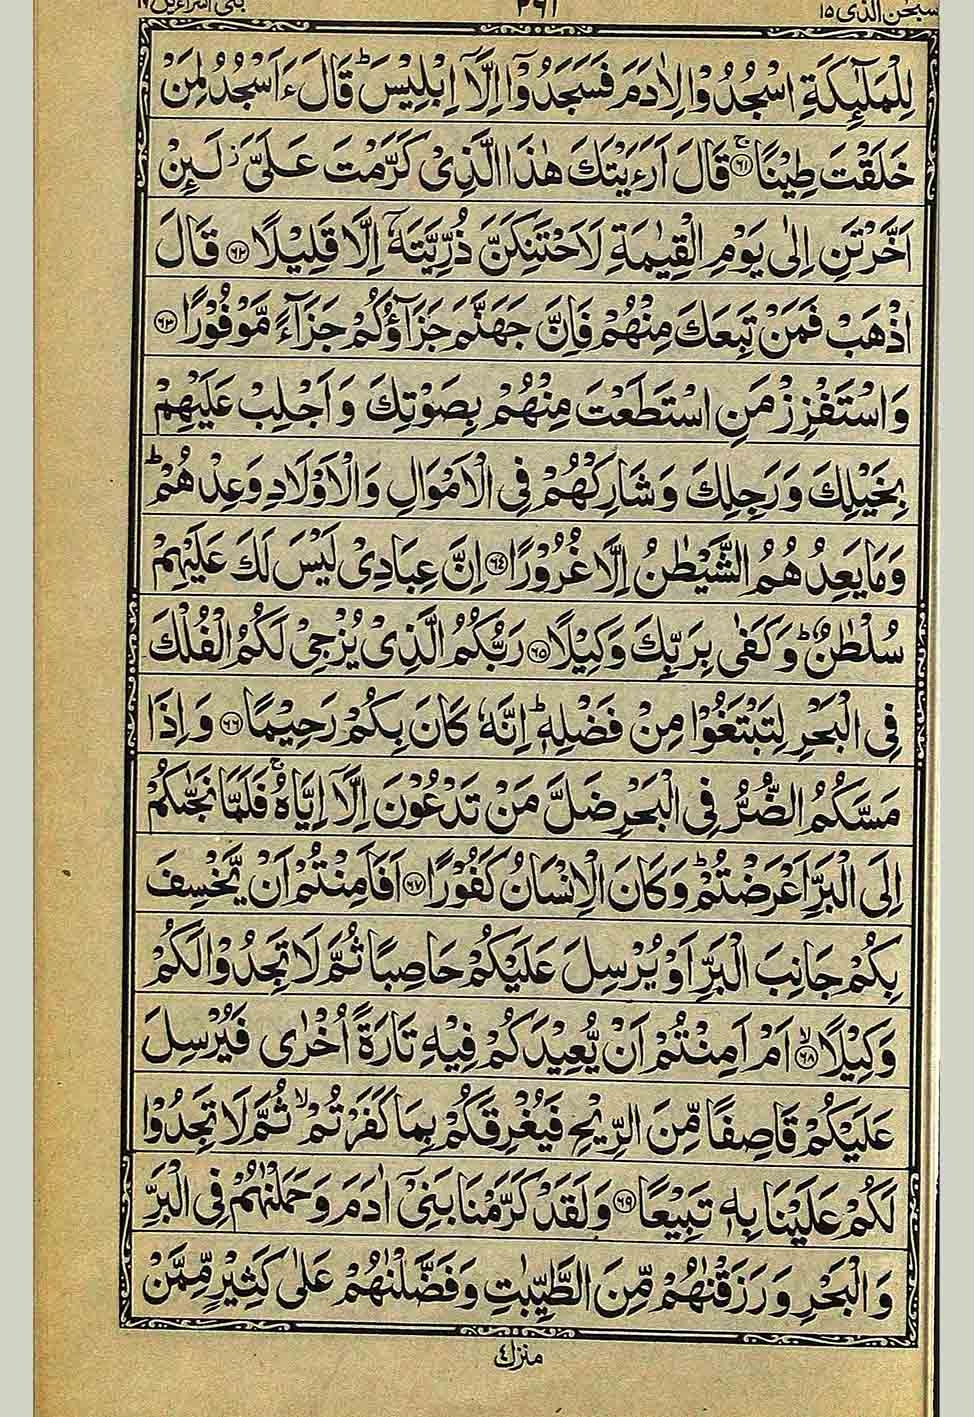 سبحٰن الذی ۱۵ ۲۹۱ بنی اسراءیل ۱۷
لِلْمَلٰٓئِكَةِ اسْجُدُوْا لِاٰدَمَ فَسَجَدُوْٓا اِلَّآ اِبْلِيْسَ ؕ قَالَ ءَاَسْجُدُ لِمَنْ
خَلَقْتَ طِيْنًا ۚ﴿۶۱﴾ قَالَ اَرَءَيْتَكَ هٰذَا الَّذِیْ كَرَّمْتَ عَلَیَّ ؗ لَىِٕنْ
اَخَّرْتَنِ اِلٰی يَوْمِ الْقِيٰمَةِ لَاَحْتَنِكَنَّ ذُرِّيَّتَهٗٓ اِلَّا قَلِيْلًا ﴿۶۲﴾ قَالَ
اذْهَبْ فَمَنْ تَبِعَكَ مِنْهُمْ فَاِنَّ جَهَنَّمَ جَزَآؤُكُمْ جَزَآءً مَّوْفُوْرًا ﴿۶۳﴾
وَاسْتَفْزِزْ مَنِ اسْتَطَعْتَ مِنْهُمْ بِصَوْتِكَ وَاَجْلِبْ عَلَيْهِمْ
بِخَيْلِكَ وَرَجِلِكَ وَشَارِكْهُمْ فِی الْاَمْوَالِ وَالْاَوْلَادِ وَعِدْهُمْ ؕ
وَمَا يَعِدُهُمُ الشَّيْطٰنُ اِلَّا غُرُوْرًا ﴿۶۴﴾ اِنَّ عِبَادِیْ لَيْسَ لَكَ عَلَيْهِمْ
سُلْطٰنٌ ؕ وَكَفٰی بِرَبِّكَ وَكِيْلًا ﴿۶۵﴾ رَبُّكُمُ الَّذِیْ يُزْجِیْ لَكُمُ الْفُلْكَ
فِی الْبَحْرِ لِتَبْتَغُوْا مِنْ فَضْلِهٖ ؕ اِنَّهٗ كَانَ بِكُمْ رَحِيْمًا ﴿۶۶﴾ وَاِذَا
مَسَّكُمُ الضُّرُّ فِی الْبَحْرِ ضَلَّ مَنْ تَدْعُوْنَ اِلَّآ اِيَّاهُ ۚ فَلَمَّا نَجّٰىكُمْ
اِلَی الْبَرِّ اَعْرَضْتُمْ ؕ وَكَانَ الْاِنْسَانُ كَفُوْرًا ﴿۶۷﴾ اَفَاَمِنْتُمْ اَنْ يَّخْسِفَ
بِكُمْ جَانِبَ الْبَرِّ اَوْ يُرْسِلَ عَلَيْكُمْ حَاصِبًا ثُمَّ لَا تَجِدُوْا لَكُمْ
وَكِيْلًا ۙ﴿۶۸﴾ اَمْ اَمِنْتُمْ اَنْ يُّعِيْدَكُمْ فِيْهِ تَارَةً اُخْرٰی فَيُرْسِلَ
عَلَيْكُمْ قَاصِفًا مِّنَ الرِّيْحِ فَيُغْرِقَكُمْ بِمَا كَفَرْتُمْ ۙ ثُمَّ لَا تَجِدُوْا
لَكُمْ عَلَيْنَا بِهٖ تَبِيْعًا ﴿۶۹﴾ وَلَقَدْ كَرَّمْنَا بَنِیْٓ اٰدَمَ وَحَمَلْنٰهُمْ فِی الْبَرِّ
وَالْبَحْرِ وَرَزَقْنٰهُمْ مِّنَ الطَّيِّبٰتِ وَفَضَّلْنٰهُمْ عَلٰی كَثِيْرٍ مِّمَّنْ
منزل ٤